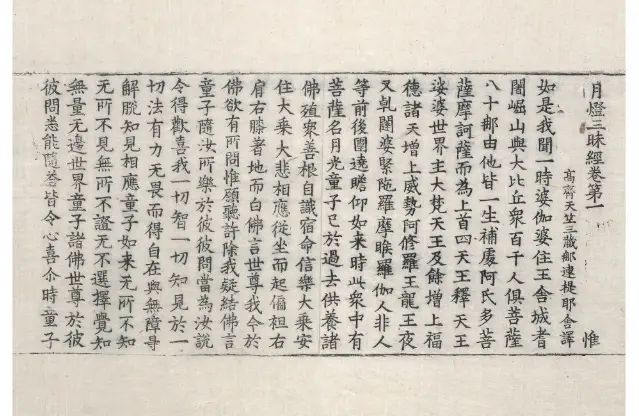 月燈三昧經卷第一　惟
高齊天竺三藏那連提耶舍譯
如是我聞一時婆伽婆住王舍城耆
闍崛山與大比丘衆百千人俱菩薩
八十那由他皆一生補處阿氏多菩
薩摩訶薩而為上首四天王釋天王
娑婆世界主大梵天王及餘增上福
德諸天增上威勢阿修羅王龍王夜
叉乹闥婆緊陁羅摩睺羅伽人非人
等前後圍遶瞻仰如来時此衆中有
菩薩名月光童子已於過去供養諸
佛殖衆善根自識宿命信樂大乘安
住大乘大悲相應從坐而起偏袒右
肩右膝著地而白佛言世尊我今於
佛欲有所問惟願聽許除我疑結佛言
童子隨汝所樂於彼彼問當為汝說
令得歡喜我一切智一切知見於一
切法有力无畏而得自在與無障㝵
解脫知見相應童子如来无所不知
无所不見無所不證无不選擇覺知
無量无邊世界童子諸佛世尊於彼
彼問悉能隨荅皆令心喜尒時童子